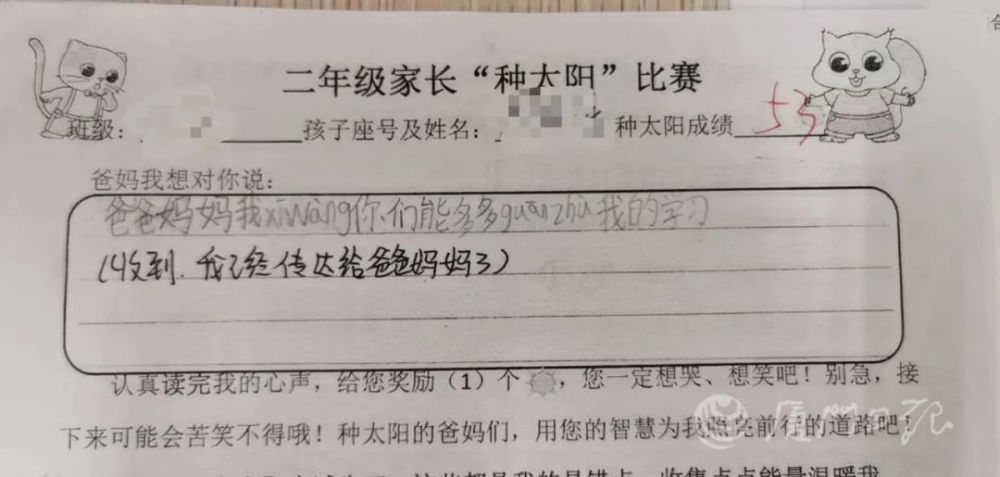 二年级家长“种太阳”比赛
班级: 孩子座号及姓名: 种太阳成绩 53
爸妈我想对你说:
爸爸妈妈我xīwàng你们能多多guānzhù我的学习
(收到.我已经传达给爸爸妈妈了)
认真读完我的心声，给您奖励（1）个 ，您一定想哭、想笑吧！别急，接
下来可能会苦笑不得哦！种太阳的爸妈们，用您的智慧为我照亮前行的道路吧！